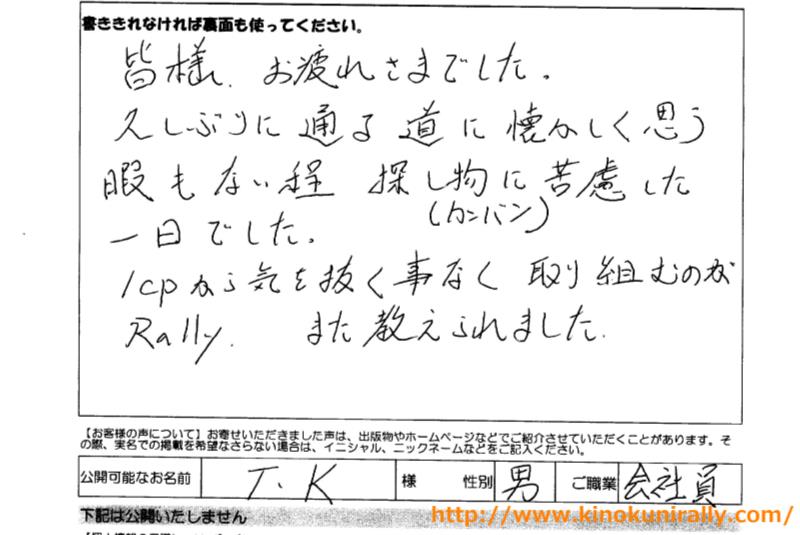 書ききれなければ裏面も使ってください。
皆様、お疲れさまでした。
久しぶりに通る道に懐かしく思う
暇もない程 探し物に苦慮した
(カンバン)
一日でした。
1cpから気を抜く事なく 取り組むのが
Rally. また教えられました.
【お客様の声について】お寄せいただきました声は、出版物やホームページなどでご紹介させていただくことがあります。そ
の際、実名での掲載を希望なさらない場合は、イニシャル、ニックネームなどをご記入ください。
公開可能なお名前 T.K 様 性別 男 ご職業 会社員
下記は公開いたしません
http://www.kinokunirally.com/